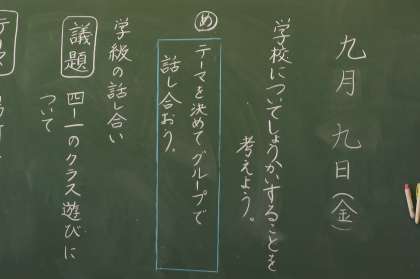 九月 九日(金)
学校についてしょうかいすることを
考えよう。
め
テーマを決めてグループで
話し合おう。
学級の話し合い
議題 四-一のクラス遊びに
ついて
テーマ